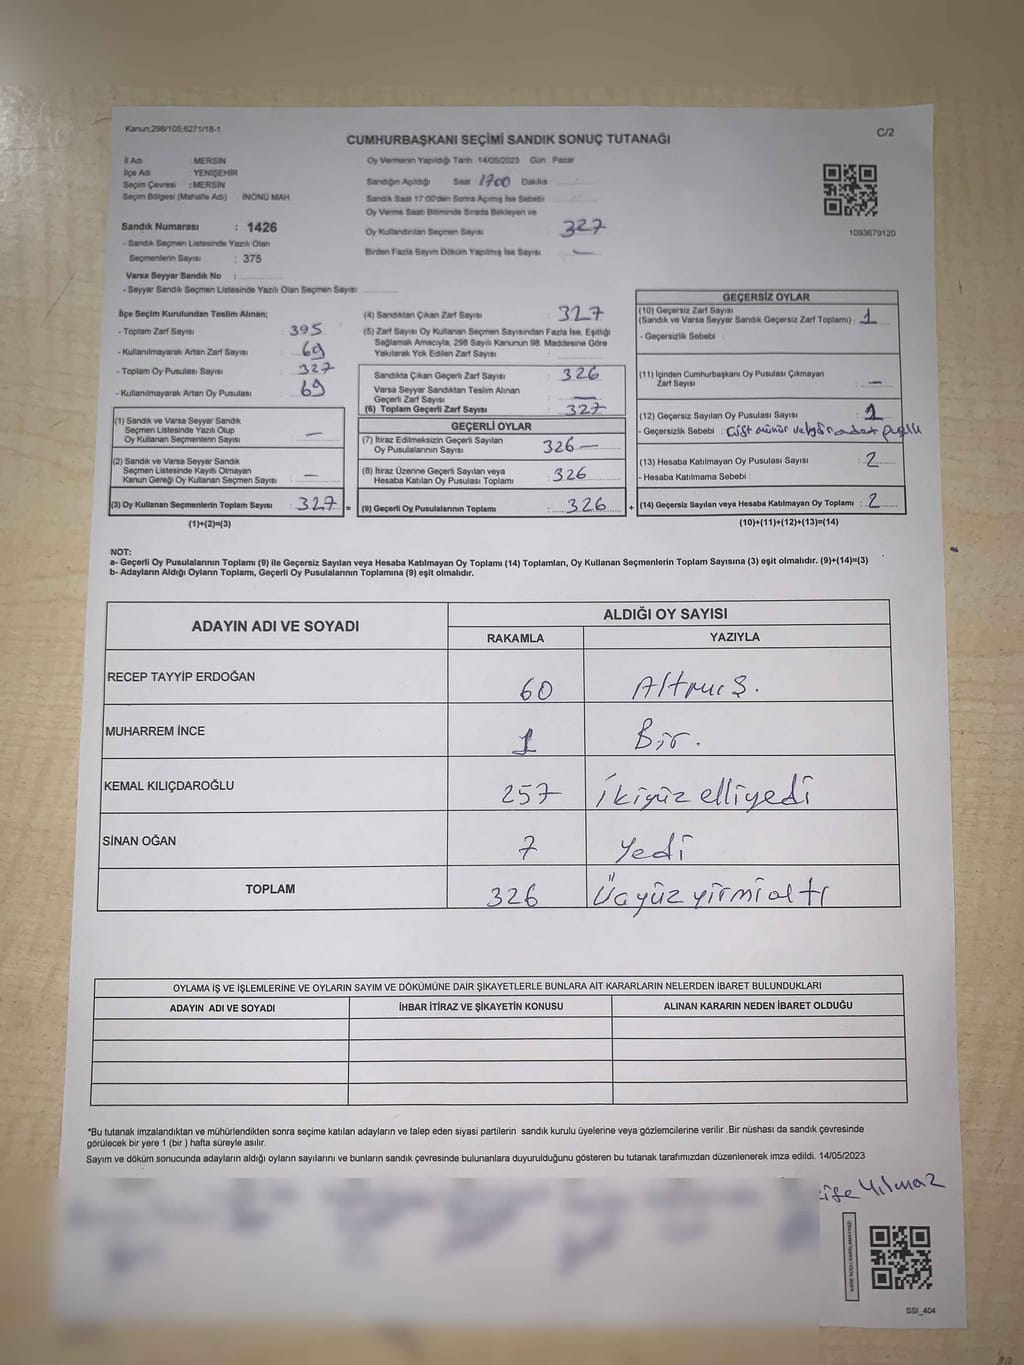 Kanun:298/105;6271/18-1
C/2
CUMHURBAŞKANI SEÇİMİ SANDIK SONUÇ TUTANAĞI
İl Adı : MERSİN
İlçe Adı : YENİŞEHİR
Seçim Çevresi : MERSİN
Seçim Bölgesi (Mahalle Adı) İNÖNÜ MAH.
Sandık Numarası : 1426
- Sandık Seçmen Listesinde Yazılı Olan
Seçmenlerin Sayısı : 375
Varsa Seyyar Sandık No :
- Seyyar Sandık Seçmen Listesinde Yazılı Olan Seçmen Sayısı
Oy Vermenin Yapıldığı Tarih : 14/05/2023 Gün : Pazar
Sandığın Açıldığı Saat : 1700 Dakika
Sandık Saat 17:00'den Sonra Açımış İse Sebebi
Oy Verme Saati Bitiminde Sırada Bekleyen ve
Oy Kullandırılan Seçmen Sayısı 327
Birden Fazla Sayım Döküm Yapılmış İse Sayısı —
1093679120
İlçe Seçim Kurulundan Teslim Alınan;
- Toplam Zarf Sayısı : 395
- Kullanılmayarak Artan Zarf Sayısı : 69
- Toplam Oy Pusulası Sayısı : 327
- Kullanılmayarak Artan Oy Pusulası : 69
(1) Sandık ve Varsa Seyyar Sandık
Seçmen Listesinde Yazılı Olup
Oy Kullanan Seçmenlerin Sayısı : —
(2) Sandık ve Varsa Seyyar Sandık
Seçmen Listesinde Kayıtlı Olmayan
Kanun Gereği Oy Kullanan Seçmen Sayısı : —
(3) Oy Kullanan Seçmenlerin Toplam Sayısı : 327 =
(1)+(2)=(3)
(4) Sandıktan Çıkan Zarf Sayısı : 327
(5) Zarf Sayısı Oy Kullanan Seçmen Sayısından Fazla İse, Eşitliği
Sağlamak Amacıyla, 298 Sayılı Kanunun 98. Maddesine Göre
Yakılarak Yok Edilen Zarf Sayısı :
Sandıkta Çıkan Geçerli Zarf Sayısı : 326
Varsa Seyyar Sandıktan Teslim Alınan
Geçerli Zarf Sayısı : —
(6) Toplam Geçerli Zarf Sayısı : 327
GEÇERLİ OYLAR
(7) İtiraz Edilmeksizin Geçerli Sayılan
Oy Pusulalarının Sayısı : 326 —
(8) İtiraz Üzerine Geçerli Sayılan veya
Hesaba Katılan Oy Pusulası Toplamı : 326
(9) Geçerli Oy Pusulalarının Toplamı : 326 +
GEÇERSİZ OYLAR
(10) Geçersiz Zarf Sayısı
(Sandık ve Varsa Seyyar Sandık Geçersiz Zarf Toplamı) : 1
- Geçersizlik Sebebi :
(11) İçinden Cumhurbaşkanı Oy Pusulası Çıkmayan
Zarf Sayısı : —
(12) Geçersiz Sayılan Oy Pusulası Sayısı : 1
- Geçersizlik Sebebi : çift mühür
(13) Hesaba Katılmayan Oy Pusulası Sayısı : 2
- Hesaba Katılmama Sebebi :
(14) Geçersiz Sayılan veya Hesaba Katılmayan Oy Toplamı : 2
(10)+(11)+(12)+(13)=(14)
NOT:
a- Geçerli Oy Pusulalarının Toplamı (9) ile Geçersiz Sayılan veya Hesaba Katılmayan Oy Toplamı (14) Toplamları, Oy Kullanan Seçmenlerin Toplam Sayısına (3) eşit olmalıdır. (9)+(14)=(3)
b- Adayların Aldığı Oyların Toplamı, Geçerli Oy Pusulalarının Toplamına (9) eşit olmalıdır.
ADAYIN ADI VE SOYADI
ALDIĞI OY SAYISI
RAKAMLA YAZIYLA
RECEP TAYYİP ERDOĞAN 60 Altmış.
MUHARREM İNCE 1 Bir.
KEMAL KILIÇDAROĞLU 257 İkiyüz elliyedi
SİNAN OĞAN 7 Yedi
TOPLAM 326 Üçyüz yirmialtı
OYLAMA İŞ VE İŞLEMLERİNE VE OYLARIN SAYIM VE DÖKÜMÜNE DAİR ŞİKAYETLERLE BUNLARA AİT KARARLARIN NELERDEN İBARET BULUNDUKLARI
ADAYIN ADI VE SOYADI İHBAR İTİRAZ VE ŞİKAYETİN KONUSU ALINAN KARARIN NEDEN İBARET OLDUĞU
*Bu tutanak imzalandıktan ve mühürlendikten sonra seçime katılan adayların ve talep eden siyasi partilerin sandık kurulu üyelerine veya gözlemcilerine verilir .Bir nüshası da sandık çevresinde
görülecek bir yere 1 (bir ) hafta süreyle asılır.
Sayım ve döküm sonucunda adayların aldığı oyların sayılarını ve bunların sandık çevresinde bulunanlara duyurulduğunu gösteren bu tutanak tarafımızdan düzenlenerek imza edildi. 14/05/2023
Yılmaz
SSI_404